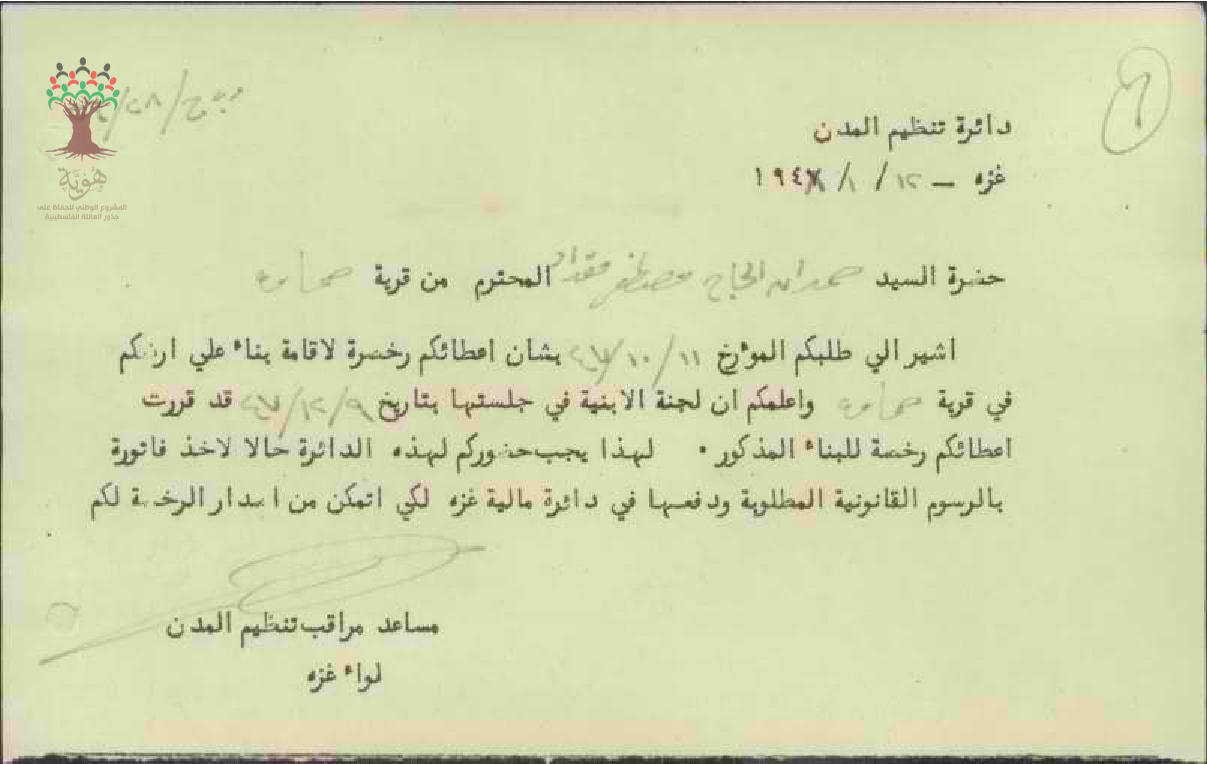 دائرة تنظيم المدن
غزه — ١٢ / ١ / ١٩٤٨
هوية
المشروع الوطني للحفاظ على
جذور العائلة الفلسطينية
حضرة السيد حمدان الحاج مصطفى مقداد المحترم من قرية حمامه
اشير الي طلبكم الموءرخ ١١/١٠/٤٧ بشان اعطائكم رخصة لاقامة بناء علي ارضكم
في قرية حمامه واعلمكم ان لجنة الابنية في جلستها بتاريخ ٩/١٢/٤٧ قد قررت
اعطائكم رخصة للبناء المذكور . لهذا يجب حضوركم لهذه الدائرة حالا لاخذ فاتورة
بالرسوم القانونية المطلوبة ودفعها في دائرة مالية غزه لكي اتمكن من اصدار الرخصة لكم
مساعد مراقب تنظيم المدن
لواء غزه